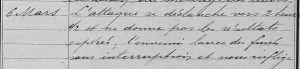 6 Mars L'attaque se déclanche vers 2 heures
1/2 et ne donne pas les résultats
espérés. L'ennemi lance des fusées
sans interruption et nous inflige